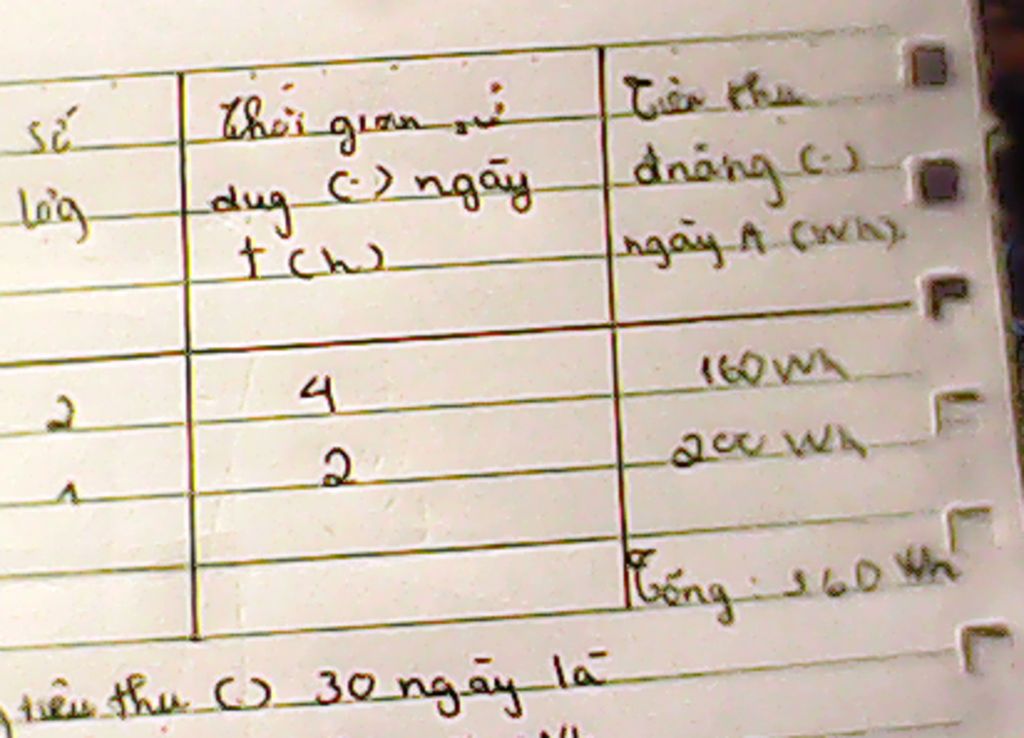 số
lượg
thời gian sử
dug (.) ngày
t (h)
tiêu thu
đnăng (.)
ngày A (Wh).
2
4
160 Wh
1
2
200 Wh
Tổng: 360 Wh
tiêu thu () 30 ngày là